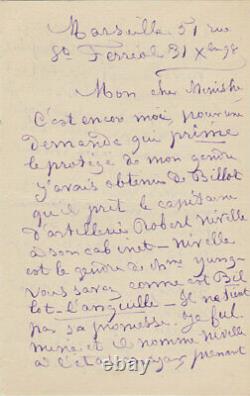 Marseille 51 rue
St Ferréol 31 Xbre 98
Mon cher Ministre
C'est encor moi, pour une
demande qui prime
le protégé de mon gendre
J'avais obtenu de Billot
qu'il prêt le capitaine
d'artillerie Robert Nivelle
à son cabinet - Nivelle
est le gendre de Mme Yung -
vous savez comme est Bil
lot - l'anguille - Il ne tient
pas sa promesse. Je ful
mine et il nomme Nivelle
à l'état major prenant
© ebay.com